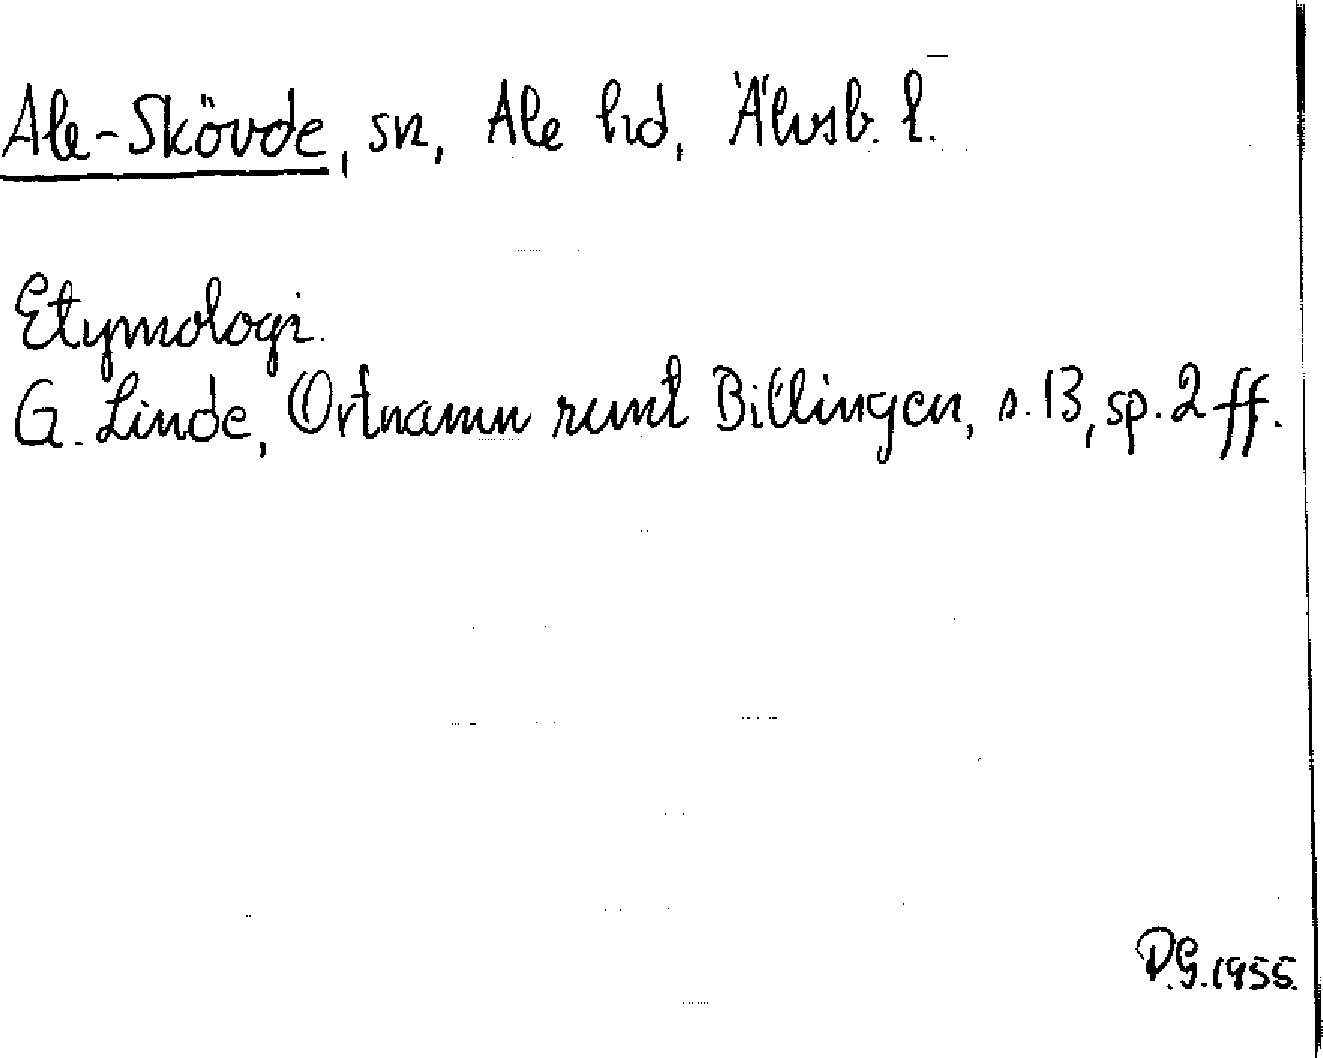 Ale-Skövde, sn, Ale hd, Älvsb. l.
Etymologi.
G. Linde, Ortnamn runt Billingen, s. 13, sp. 2 ff.
D.G. 1955.